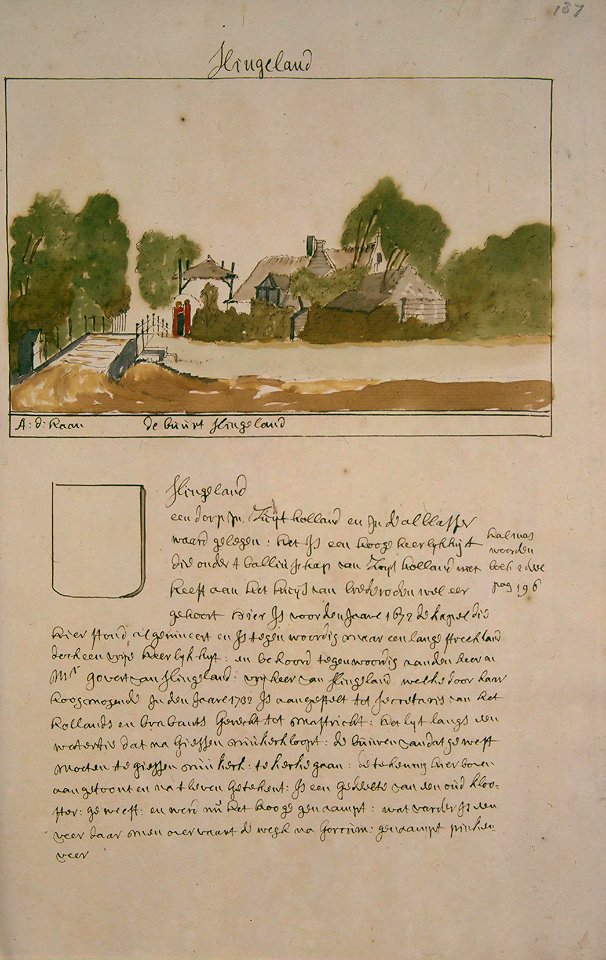 187
Slingeland
A: d: Haan de buurt Slingeland
Slingeland
een dorp in Zuijt holland en in d'alblasser
waard gelegen: het is een hooge heerlykhijt
die onder t balliuschap van Zuijt holland niet
heeft aan het huijs van brederoden wel eer
gehoort hier is voor den Jaare 1672 de kapel die
halmas
woorden
boek 2 deel
pag 196
hier stond, al geruineert en is tegenwoordig maar een lange streek land
doch een vrije heerlykhijt: en behoord tegenwoordig aan den heer en
Mr govert van Slingeland: vrijheer van Slingeland welke door haar
hoogmogende in den Jaare 1732 is aangestelt tot secretaris van het
hollands en brabands gerecht tot mastricht: het lijt langs een
watertie dat na giessen nieukerk loopt: de buuren van dat gewest
moeten te giessen nieukerk: te kerke gaan: de tekening hier boven
aangetoont en na t leven getekent: is een gedeelte van den oud kloo-
ster: geweest: en werd nu het hooge genaampt: wat varder is een
veer daar men over vaart de wegh na Gorcum: genaampt pinken
veer